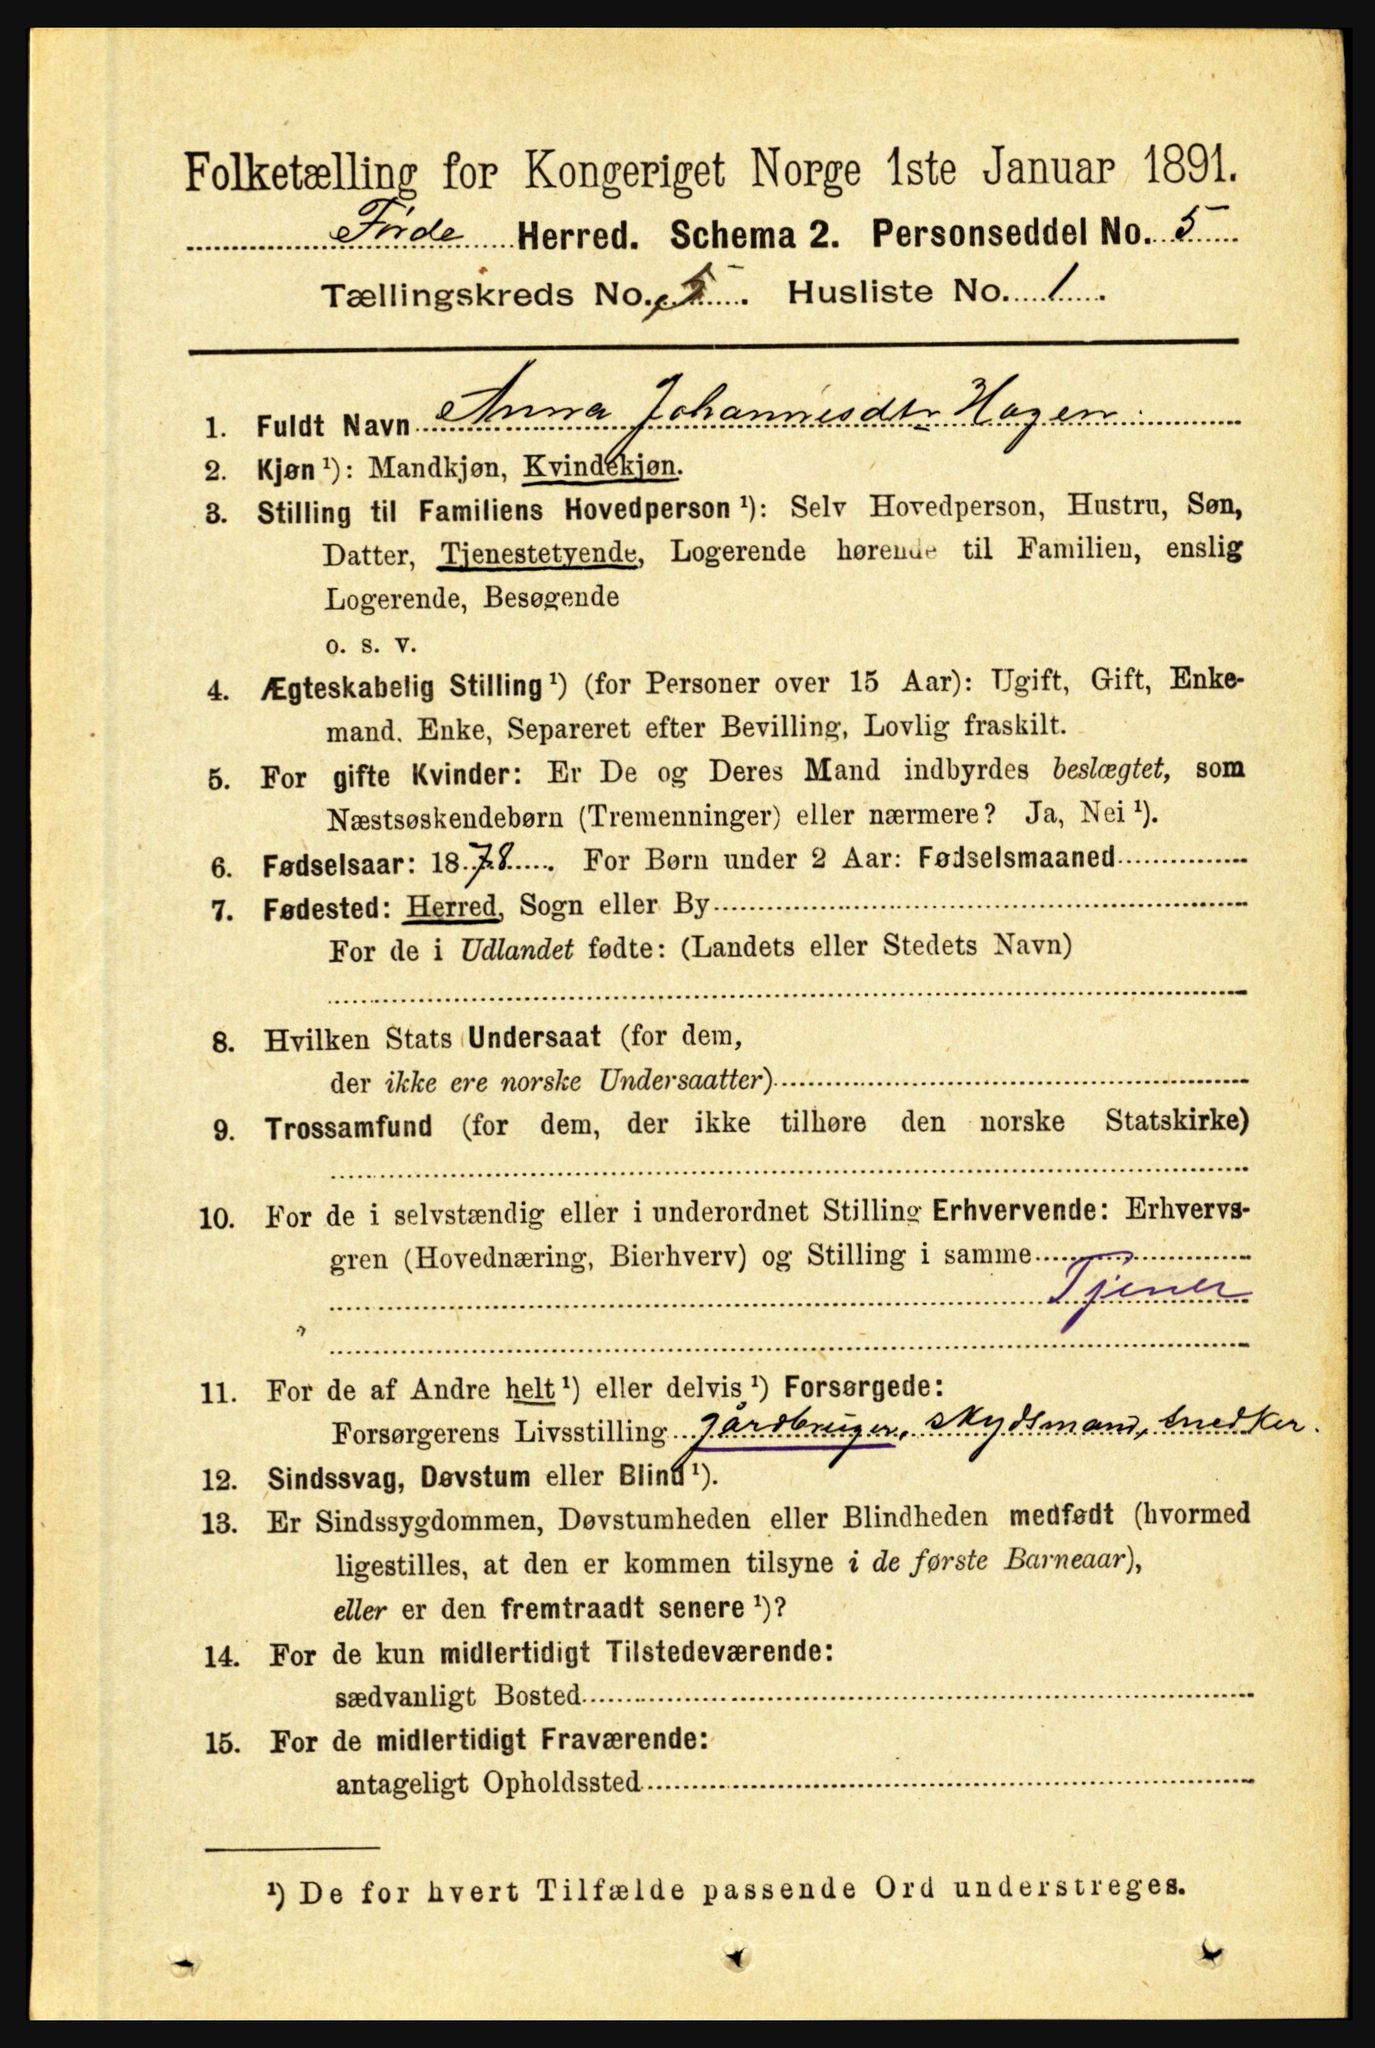 Folketælling for Kongeriget Norge 1ste Januar 1891.
Førde Herred. Schema 2. Personseddel No. 5
Tællingskreds No. 5. Husliste No. 1.
1. Fuldt Navn Anna Johannesdtr Hagen
2. Kjøn ¹): Mandkjøn, Kvindekjøn.
3. Stilling til Familiens Hovedperson ¹): Selv Hovedperson, Hustru, Søn,
Datter, Tjenestetyende, Logerende hørende til Familien, enslig
Logerende, Besøgende
o. s. v.
4. Ægteskabelig Stilling ¹) (for Personer over 15 Aar): Ugift, Gift, Enke-
mand. Enke, Separeret efter Bevilling, Lovlig fraskilt.
5. For gifte Kvinder: Er De og Deres Mand indbyrdes beslægtet, som
Næstsøskendebørn (Tremenninger) eller nærmere? Ja, Nei ¹).
6. Fødselsaar: 1878. For Børn under 2 Aar: Fødselsmaaned
7. Fødested: Herred, Sogn eller By
For de i Udlandet fødte: (Landets eller Stedets Navn)
8. Hvilken Stats Undersaat (for dem,
der ikke ere norske Undersaatter)
9. Trossamfund (for dem, der ikke tilhøre den norske Statskirke)
10. For de i selvstændig eller i underordnet Stilling Erhvervende: Erhvervs-
gren (Hovednæring, Bierhverv) og Stilling i samme
Tjener
11. For de af Andre helt ¹) eller delvis ¹) Forsørgede:
Forsørgerens Livsstilling gårdbruger, skydsmand, snedker.
12. Sindssvag, Døvstum eller Blind ¹).
13. Er Sindssygdommen, Døvstumheden eller Blindheden medfødt (hvormed
ligestilles, at den er kommen tilsyne i de første Barneaar),
eller er den fremtraadt senere ¹)?
14. For de kun midlertidigt Tilstedeværende:
sædvanligt Bosted
15. For de midlertidigt Fraværende:
antageligt Opholdssted
¹) De for hvert Tilfælde passende Ord understreges.